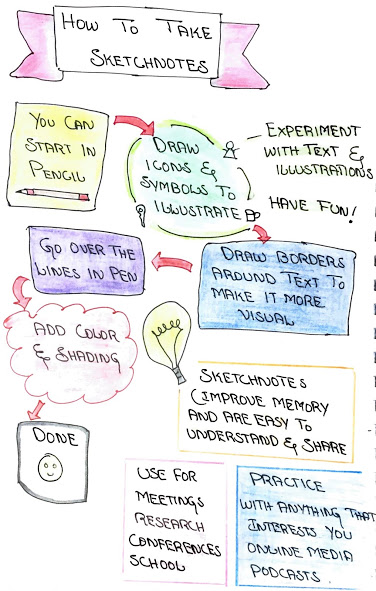 HOW TO TAKE
SKETCHNOTES
YOU CAN
START IN
PENCIL
DRAW
ICONS &
SYMBOLS TO
ILLUSTRATE
— EXPERIMENT
WITH TEXT &
ILLUSTRATIONS
HAVE FUN!
DRAW BORDERS
AROUND TEXT TO
MAKE IT MORE
VISUAL
GO OVER THE
LINES IN PEN
ADD COLOR
& SHADING
DONE
SKETCHNOTES
IMPROVE MEMORY
AND ARE EASY TO
UNDERSTAND & SHARE
USE FOR
MEETINGS
RESEARCH
CONFERENCES
SCHOOL
PRACTICE
WITH ANYTHING THAT
INTERESTS YOU
ONLINE MEDIA
PODCASTS.